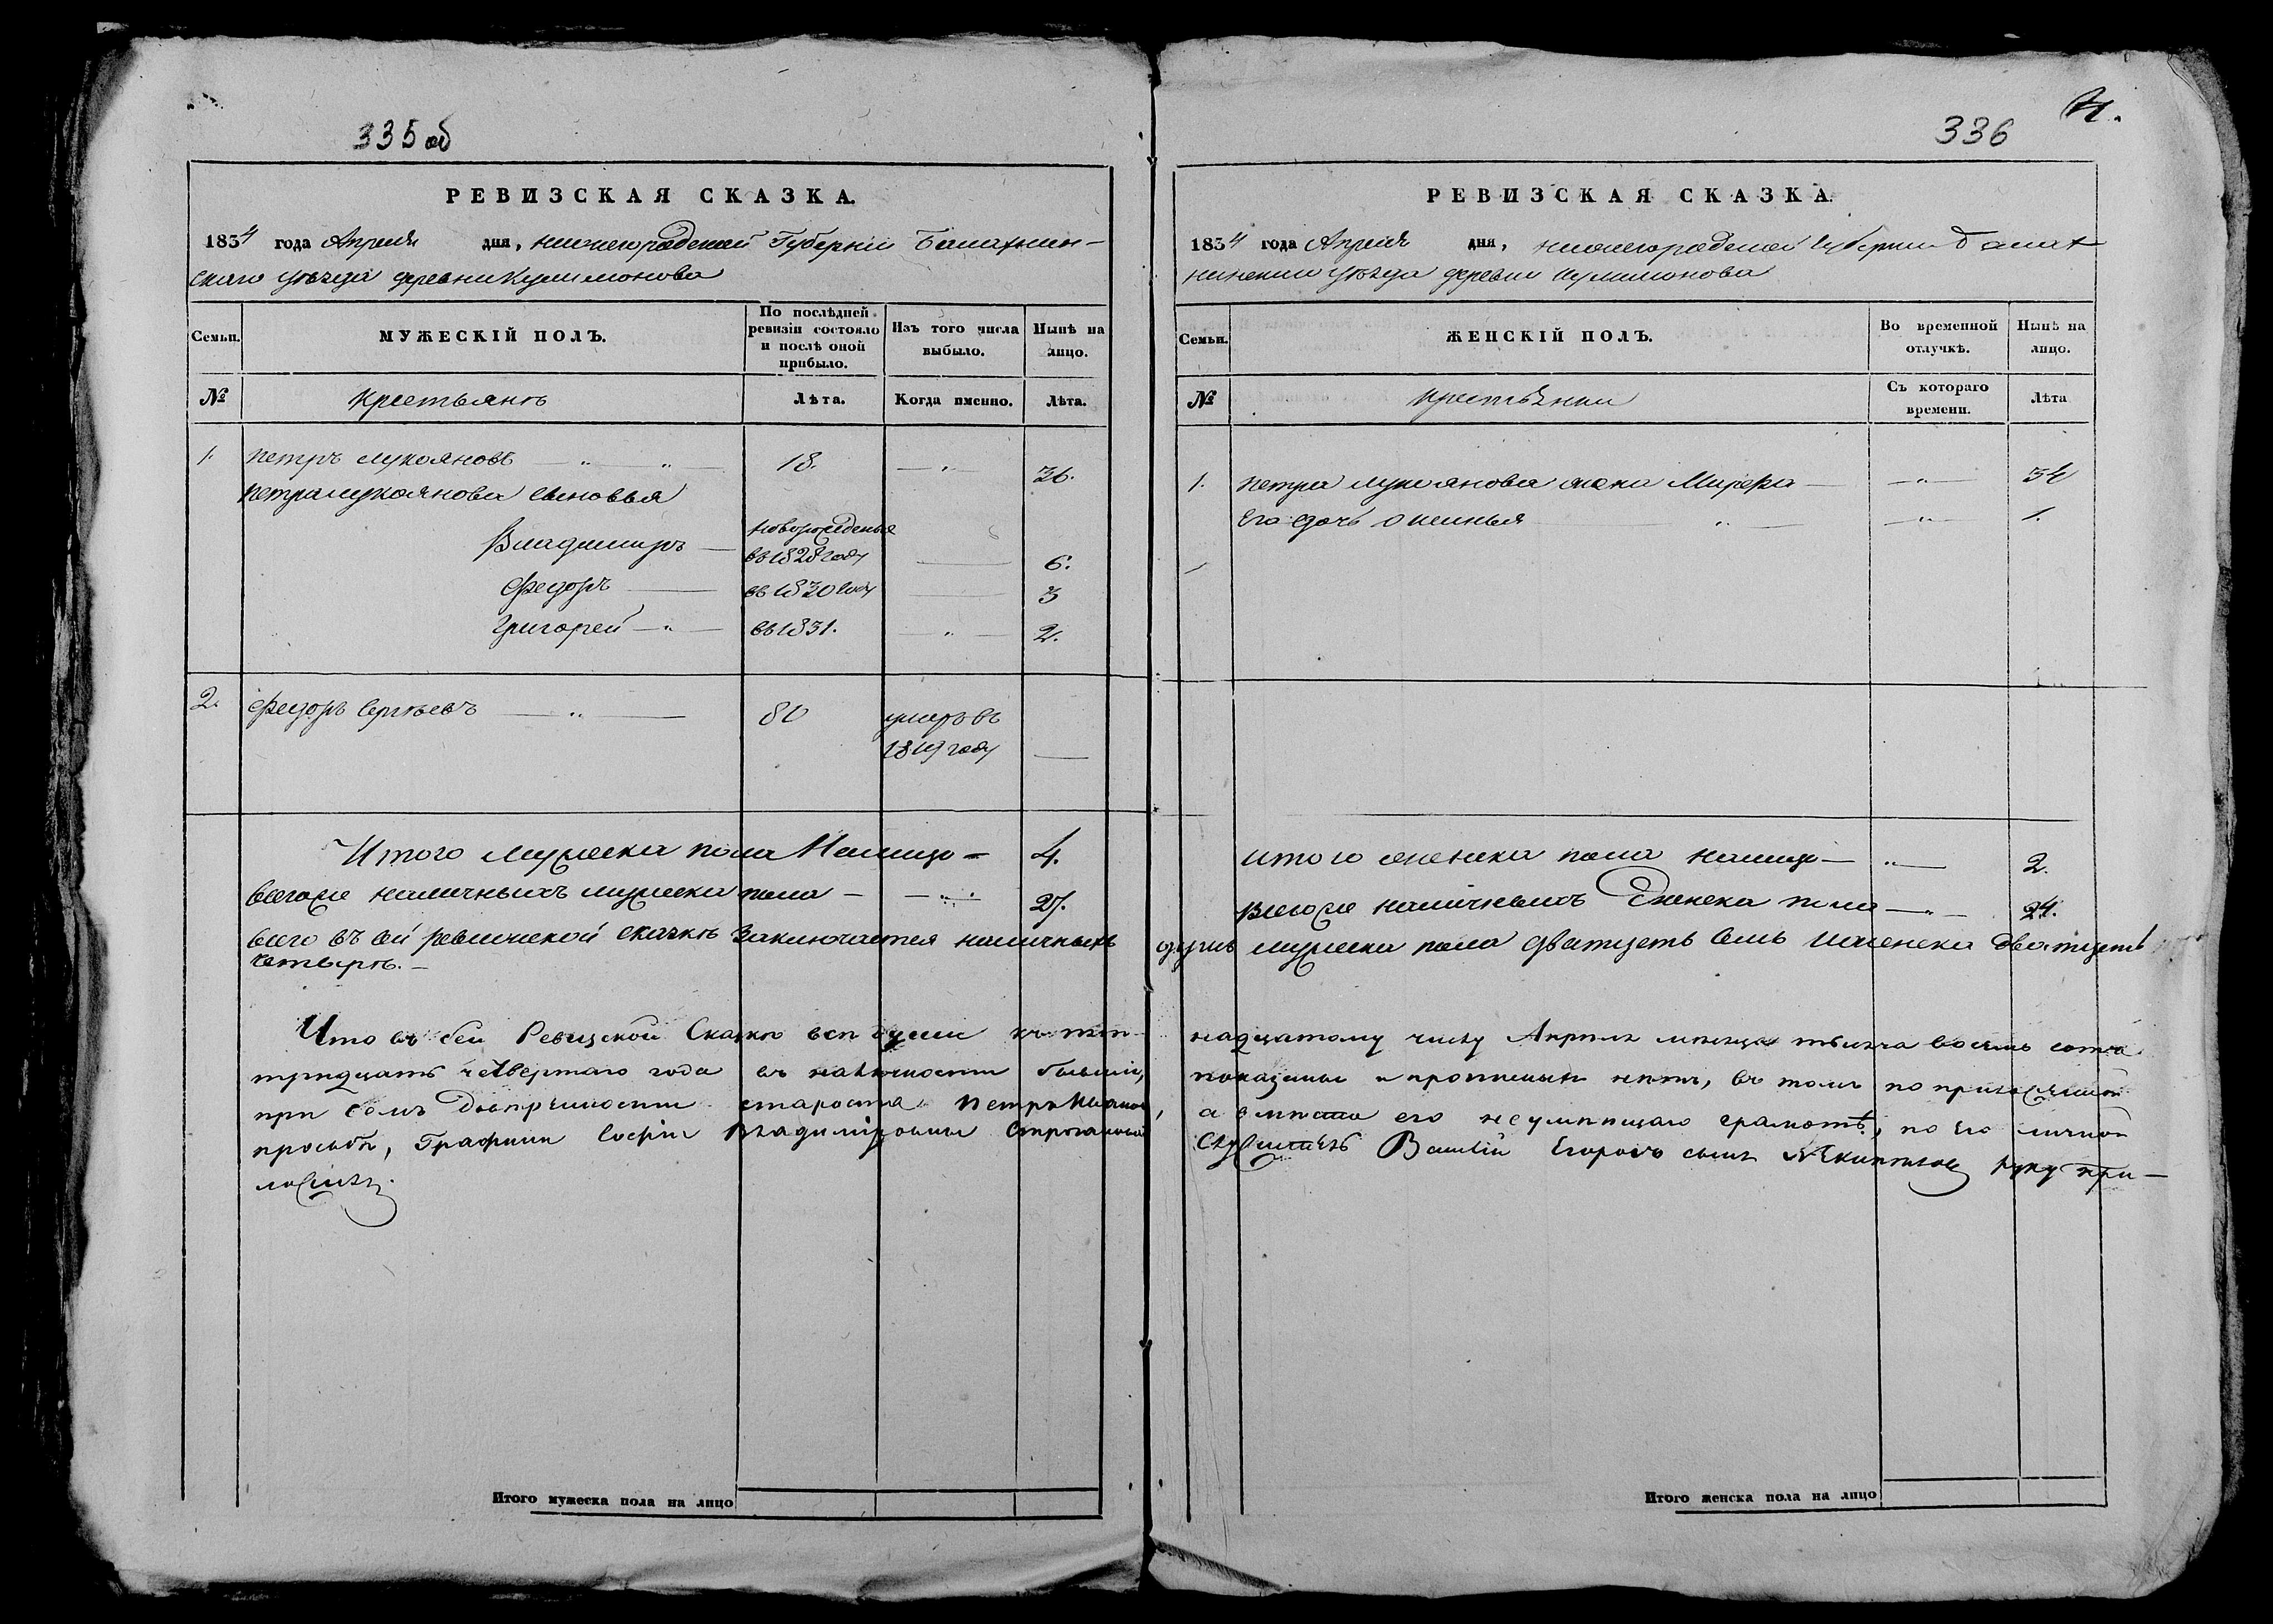 335 об
РЕВИЗСКАЯ СКАЗКА.
1834 года Апреля дня, нижегородской Губернiи Балахнин-
скаго уѣзда деревни Кулимонова
Семьи.
МУЖЕСКIЙ ПОЛЪ.
По послѣдней ревизiи состояло и послѣ оной прибыло.
Изъ того числа выбыло.
Нынѣ на лицо.
№
крестьянъ
Лѣта.
Когда именно.
Лѣта.
1. петръ лукояновъ 18. 36.
петра лукоянова сыновья
Владимиръ новорожденыя въ 1828 году 6.
Федоръ въ 1830 году 3
Григорей въ 1831. 2.
2. Федоръ Сергѣевъ 80 умеръ въ 1819 году
Итого мужеска пола Налицо 4.
всегоже наличныхъ мужеска пола 27.
всего въ сей ревижской скаскѣ Заключается наличныхъ
четыре.
Что въ сей Ревизской Сказкѣ всѣ души къ пят-
тридцать четвертаго года въ наличности бывшiя,
при семъ Довѣренности староста Петръ Ивановъ,
просьбѣ, Графини Софiи Владимiровны Строгановой
ложилъ.
336
РЕВИЗСКАЯ СКАЗКА
1834 года Апреля дня, нижегородской губернии балах
нинскаго уѣзда деревни кулимонова
Семьи.
ЖЕНСКIЙ ПОЛЪ.
Во временной отлучкѣ.
Нынѣ на лицо.
№
крестьянки
Съ котораго времени.
Лѣта
1. петра лукоянова жена Марфа 34
его дочь Аксинья 1.
итого женска пола налицо 2.
всегоже наличныхъ женска пола 24.
душъ мужеска пола дватцеть семь и женска дватцеть
надцатому числу Апрѣля мѣсяца тысяча восемь сотъ
показаны и прописныхъ нѣтъ, въ томъ по приложенной
а вмѣсто его неумѣющаго грамотѣ, по его личной
Служитель Василiй Егоровъ сынъ руку при-
Итого мужеска пола на лицо
Итого женска пола на лицо